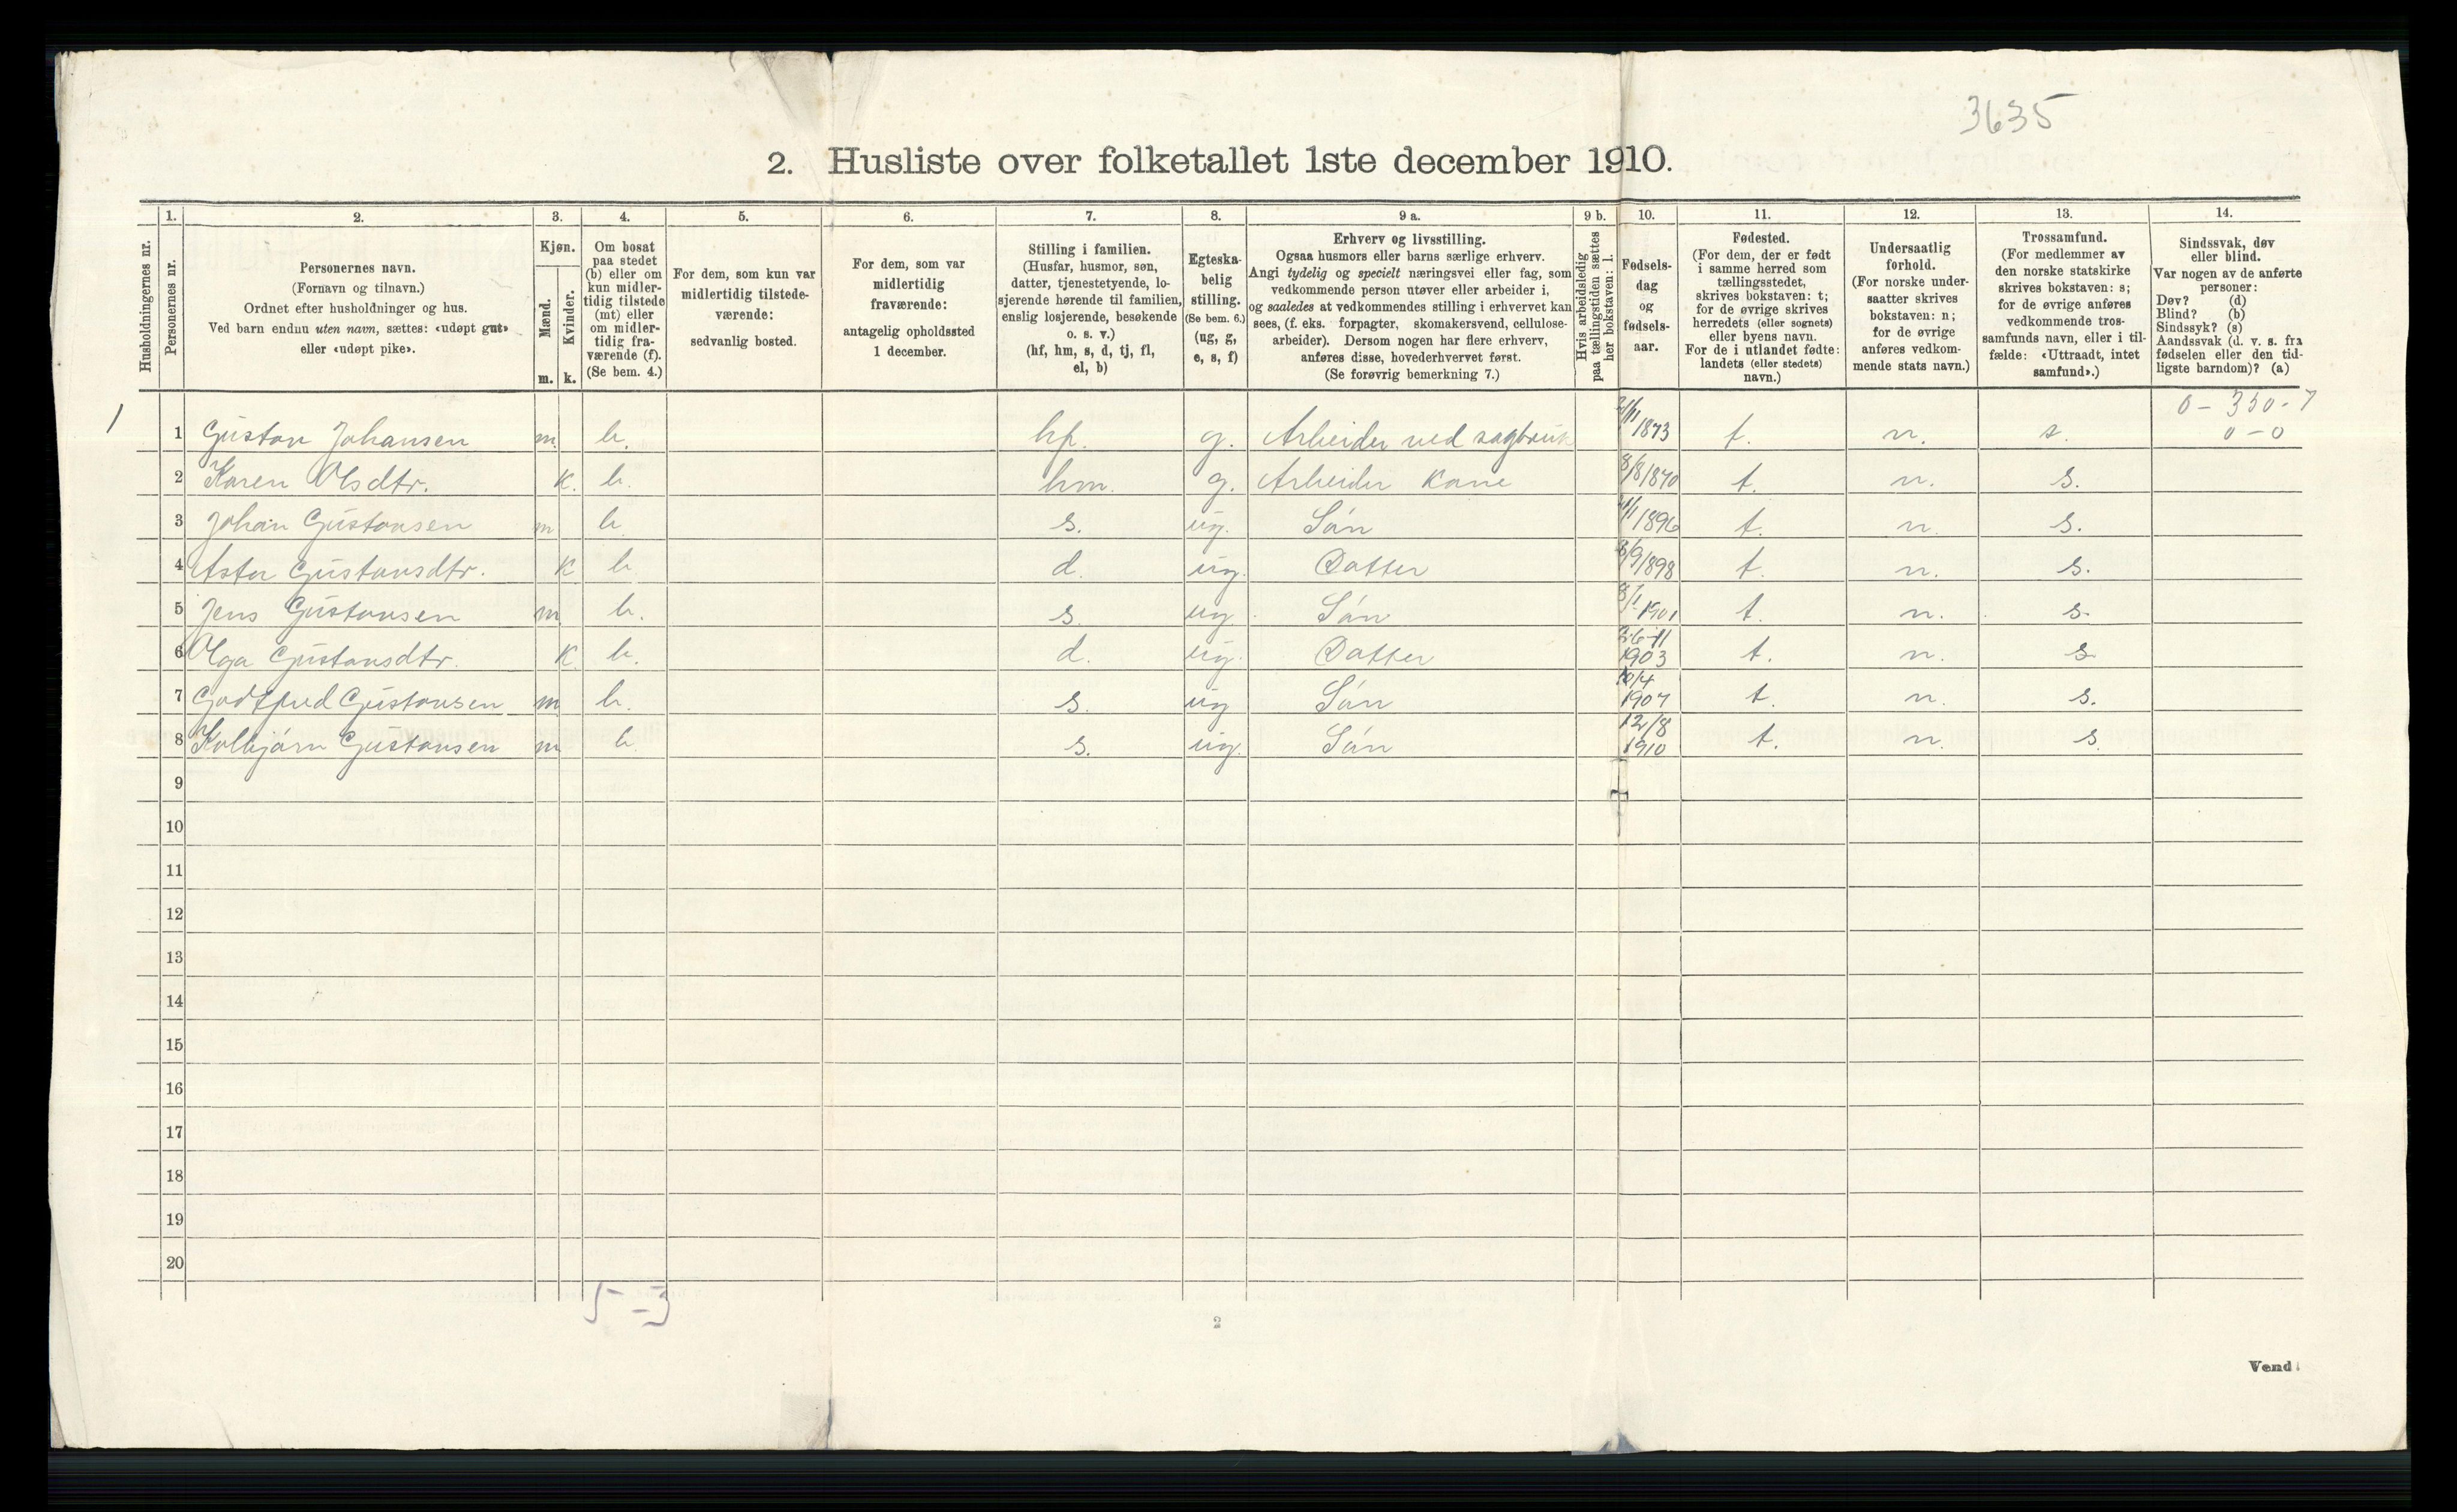 3635
2. Husliste over folketallet 1ste december 1910.
Husholdningernes nr.
1.
Personernes nr.
2.
Personernes navn.
(Fornavn og tilnavn.)
Ordnet efter husholdninger og hus.
Ved barn endnu uten navn, sættes: «udøpt gut»
eller «udøpt pike».
3.
Kjøn.
Mænd.
Kvinder.
m. k.
4.
Om bosat
paa stedet
(b) eller om
kun midler-
tidig tilstede
(mt) eller
om midler-
tidig fra-
værende (f).
(Se bem. 4.)
5.
For dem, som kun var
midlertidig tilstede-
værende:
sedvanlig bosted.
6.
For dem, som var
midlertidig
fraværende:
antagelig opholdssted
1 december.
7.
Stilling i familien.
(Husfar, husmor, søn,
datter, tjenestetyende, lo-
sjerende hørende til familien,
enslig losjerende, besøkende
o. s. v.)
(hf, hm, s, d, tj, fl,
el, b)
8.
Egteska-
belig
stilling.
(Se bem. 6.)
(ug, g,
e, s, f)
9 a.
Erhverv og livsstilling.
Ogsaa husmors eller barns særlige erhverv.
Angi tydelig og specielt næringsvei eller fag, som
vedkommende person utøver eller arbeider i,
og saaledes at vedkommendes stilling i erhvervet kan
sees, (f. eks. forpagter, skomakersvend, cellulose-
arbeider). Dersom nogen har flere erhverv,
anføres disse, hovederhvervet først.
(Se forøvrig bemerkning 7.)
9 b.
Hvis arbeidsledig
paa tællingstiden sættes
her bokstaven: l.
10.
Fødsels-
dag
og
fødsels-
aar.
11.
Fødested.
(For dem, der er født
i samme herred som
tællingsstedet,
skrives bokstaven: t;
for de øvrige skrives
herredets (eller sognets)
eller byens navn.
For de i utlandet fødte:
landets (eller stedets)
navn.)
12.
Undersaatlig
forhold.
(For norske under-
saatter skrives
bokstaven: n;
for de øvrige
anføres vedkom-
mende stats navn.)
13.
Trossamfund.
(For medlemmer av
den norske statskirke
skrives bokstaven: s;
for de øvrige anføres
vedkommende tros-
samfunds navn, eller i til-
fælde: «Uttraadt, intet
samfund».)
14.
Sindssvak, døv
eller blind.
Var nogen av de anførte
personer:
Døv? (d)
Blind? (b)
Sindssyk? (s)
Aandssvak (d. v. s. fra
fødselen eller den tid-
ligste barndom)? (a)
0 - 350 - 7
1 1 Gustav Johansen m. b. hf. g. Arbeider ved sagbruk 1873 t. n. s. 0 - 0
2 Karen Olsdtr. k. b. hm. g. Arbeider Kone 8/8 1870 t. n. s.
3 Johan Gustavsen m b. s. ug. Són 1896 t. n. s.
4 Asta Gustavsdtr. k b. d. ug. Datter 1898 t. n. s.
5 Jens Gustavsen m. b. s. ug. Són 8/1 1901 t. n. s.
6 Olga Gustavsdtr. k. b. d. ug. Datter 26-11 1903 t. n. s.
7 Godtfred Gustavsen m b. s. ug Són 10/4 1907 t. n. s.
8 Kolbjórn Gustavsen m b. s. ug. Són 12/8 1910 t. n. s.
9
10
11
12
13
14
15
16
17
18
19
20
5 - 3
2
Vend!